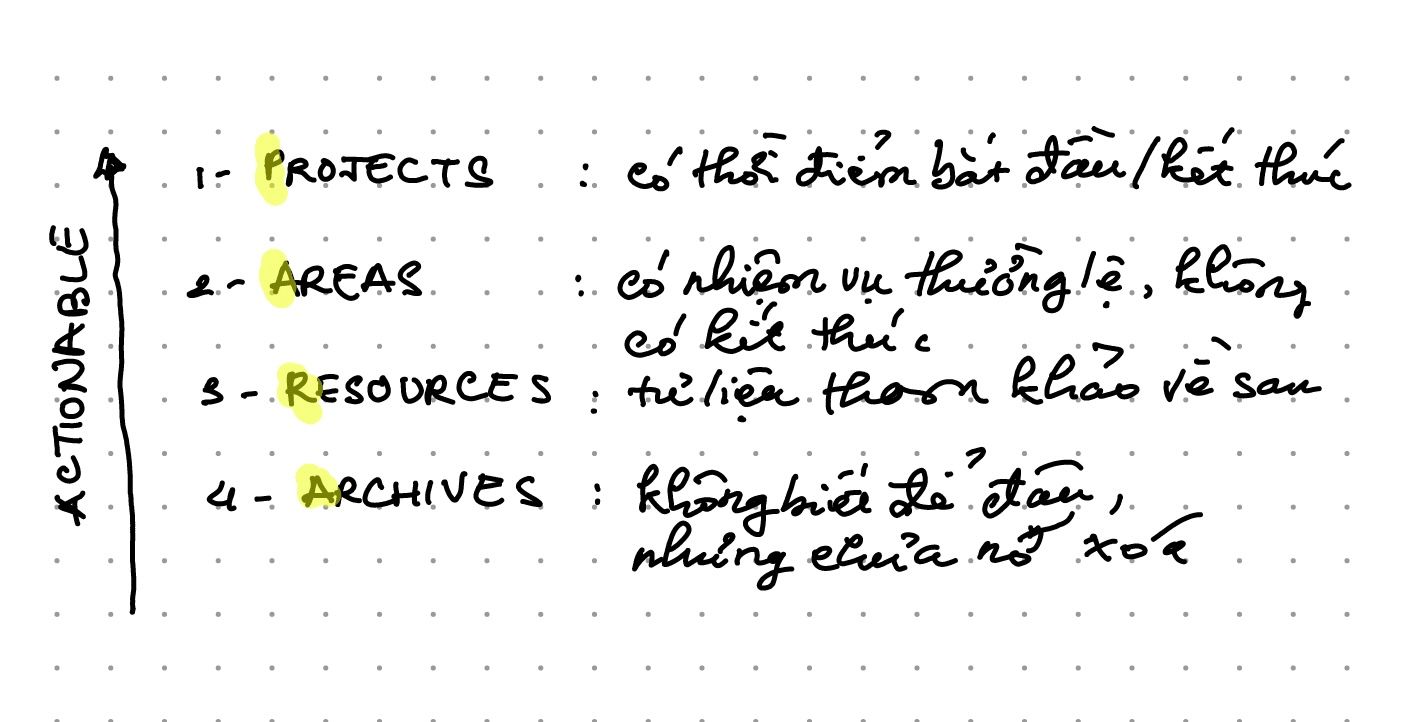 ACTIONABLE
1- PROJECTS : có thời điểm bắt đầu/kết thúc
2- AREAS : có nhiệm vụ thường lệ, không
có kết thúc
3- RESOURCES : tư liệu tham khảo về sau
4- ARCHIVES : không biết để đâu,
nhưng chưa nỡ xóa